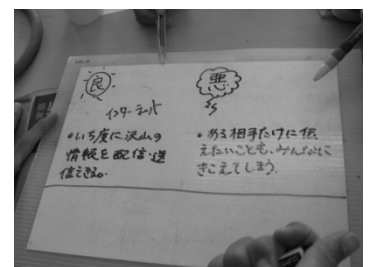 良
インターネット
・いち度に沢山の
情報を配信・送
信できる。
悪
・ある相手だけに伝
えたいことも、みんなに
きこえてしまう。